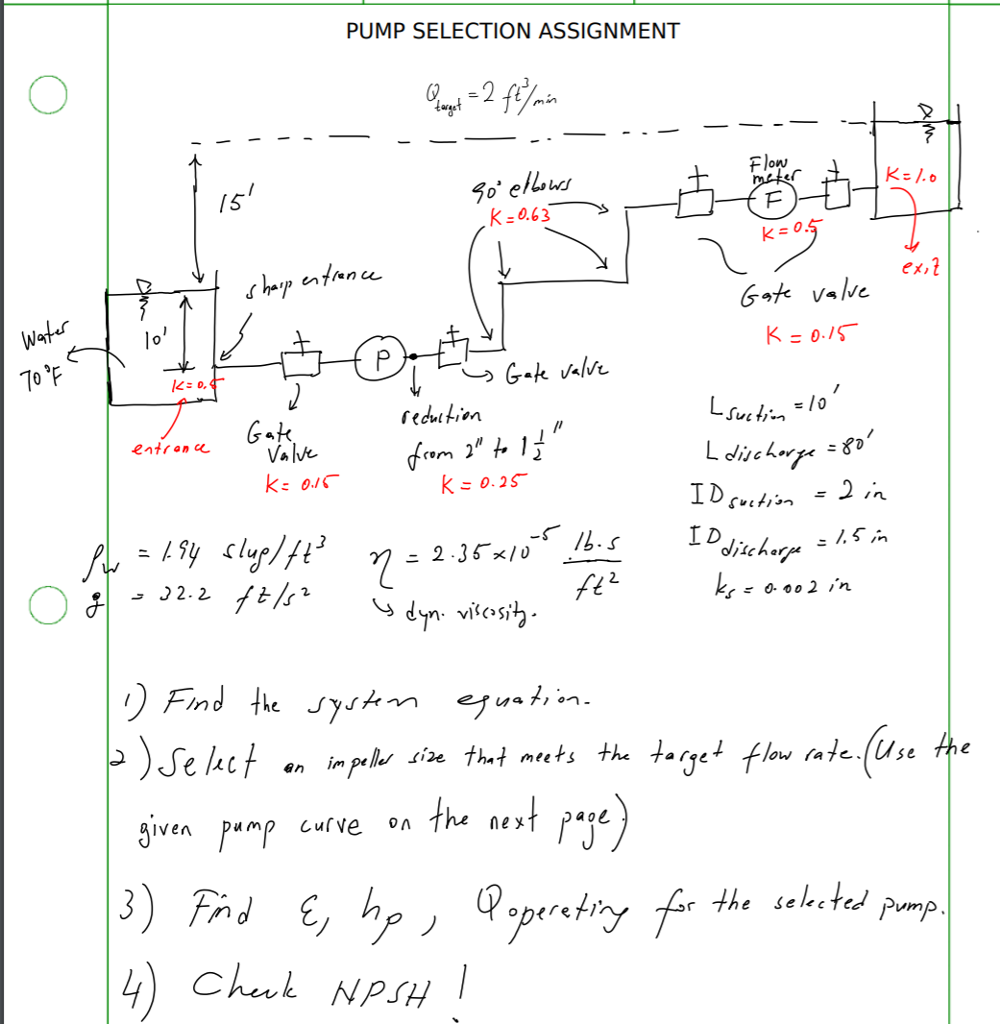 PUMP SELECTION ASSIGNMENT
Q target = 2 ft³/min
15'
90° elbows
K = 0.63
Flow meter
F
K = 0.5
K = 1.0
exit
sharp entrance
Gate valve
K = 0.15
Water
70°F
10'
K = 0.5
entrance
P
Gate valve
Gate Valve
K = 0.15
reduction
from 2" to 1 1/2"
K = 0.25
L suction = 10'
L discharge = 80'
ID suction = 2 in
ID discharge = 1.5 in
ks = 0.002 in
ρw = 1.94 slug/ft³
g = 32.2 ft/s²
η = 2.35×10⁻⁵ lb.s/ft²
dyn. viscosity.
1) Find the system equation.
2) Select an impeller size that meets the target flow rate. (Use the
given pump curve on the next page)
3) Find ε, hp, Q operating for the selected pump.
4) Check NPSH!